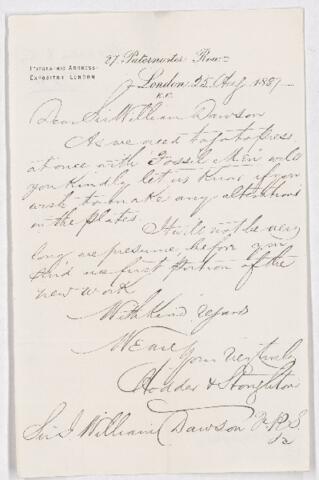 27, Paternoster Row
TELEGRAPHIC ADDRESS:
EXPOSITRY LONDON
London 25 Aug 1887
E.C.
Dear Sir William Dawson
As we need to go to press
at once with "Fossil Men" will
you kindly let us know if you
wish to make any alterations
in the plates.
It will not be very
long we presume, before you
send us first portion of the
new work
With kind regards
We are
Yours very truly
Hodder & Stoughton
Sir J William Dawson F.R.S.